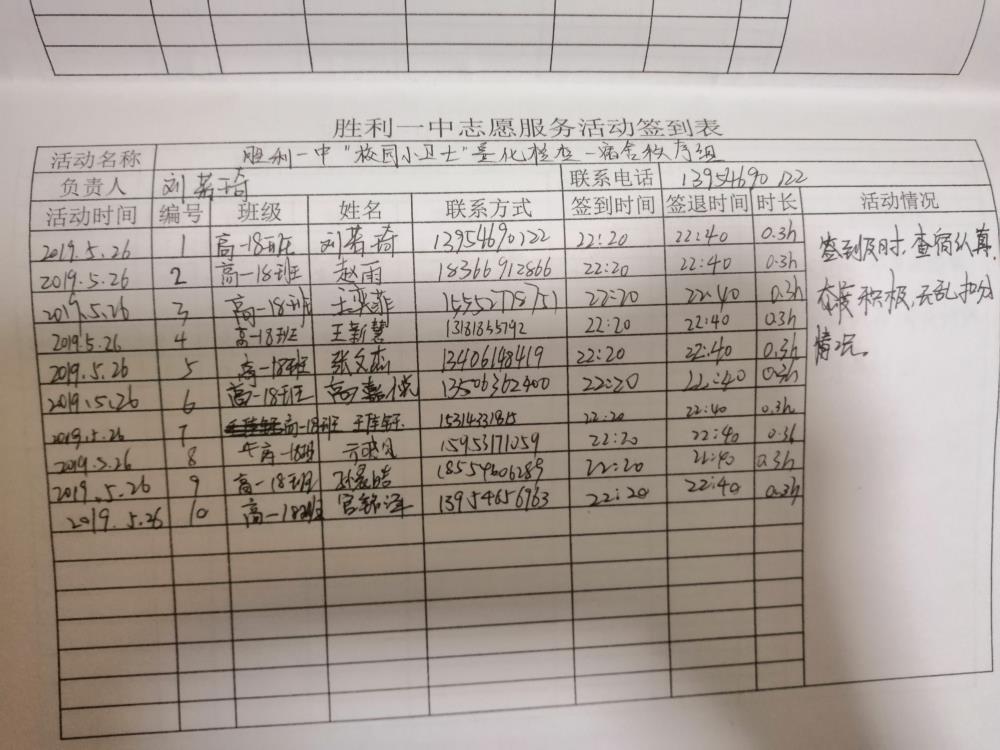 胜利一中志愿服务活动签到表
活动名称 胜利一中"校园小卫士"量化检查-宿舍秩序组
负责人 刘若琦 联系电话 13954690122
活动时间 编号 班级 姓名 联系方式 签到时间 签退时间 时长 活动情况
2019.5.26 1 高一18班 刘若琦 13954690122 22:20 22:40 0.3h
2019.5.26 2 高一18班 赵雨 18366912866 22:20 22:40 0.3h
2019.5.26 3 高一18班 22:20 22:40 0.3h
2019.5.26 4 高一18班 王新慧 13181855792 22:20 22:40 0.3h
2019.5.26 5 高一18班 张文杰 13406148419 22:20 22:40 0.3h
2019.5.26 6 高一18班 13506362400 22:20 22:40 0.3h
2019.5.26 7 高一18班 15314331815 22:20 22:40 0.3h
2019.5.26 8 高一18班 15953171059 22:20 22:40 0.3h
2019.5.26 9 高一18班 18554606289 22:20 22:40 0.3h
2019.5.26 10 高一18班 宫铭泽 13954656963 22:20 22:40 0.3h
签到及时,查宿认真,
态度积极,无乱扣分
情况。